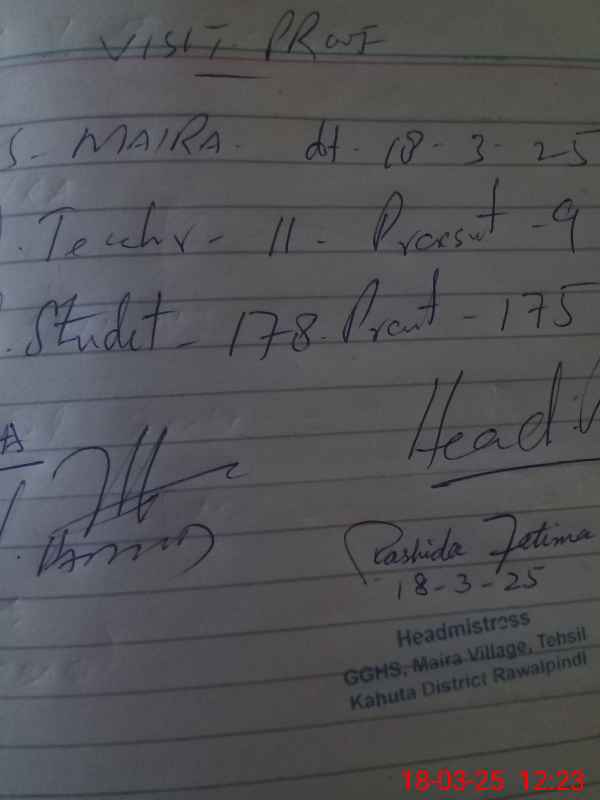 VISIT PROOF
S - MAIRA - dt - 18 - 3 - 25
. Teacher - 11 - Present - 9
. Student - 178. Present - 175
A
Head
Rashida Fatima
18-3-25
Headmistress
GGHS, Maira Village, Tehsil
Kahuta District Rawalpindi
18-03-25 12:23